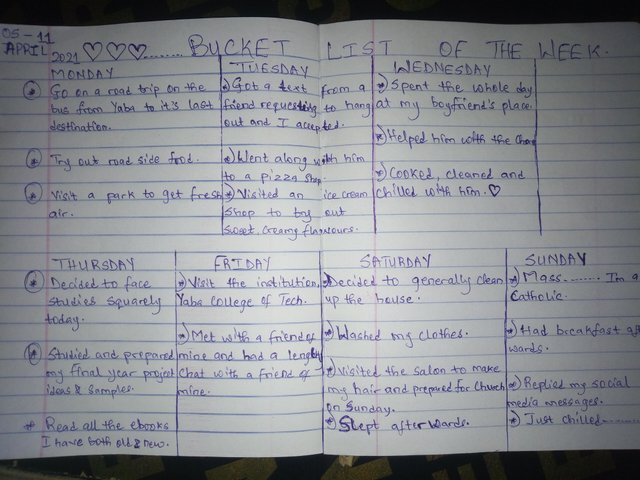 05-11
APRIL 2021 ♡♡♡........ BUCKET LIST OF THE WEEK.
MONDAY
* Go on a road trip on the
bus from Yaba to it's last
destination.
* Try out road side food.
* Visit a park to get fresh
air.
TUESDAY
* Got a text from a
friend requesting to hang
out and I accepted.
* Went along with him
to a pizza shop.
* Visited an ice cream
shop to try out
sweet, creamy flavours.
WEDNESDAY
* Spent the whole day
at my boyfriend's place.
* Helped him with the
* Cooked, cleaned and
chilled with him. ♡
THURSDAY
* Decided to face
studies squarely
today.
* Studied and prepared
my final year project
ideas & samples.
* Read all the ebooks
I have both old & new.
FRIDAY
* Visit the institution,
Yaba College of Tech.
* Met with a friend of
mine and had a lengthy
chat with a friend of
mine.
SATURDAY
* Decided to generally clean
up the house.
* Washed my clothes.
* Visited the salon to make
my hair and prepared for church
on Sunday.
* Slept after wards.
SUNDAY
* Mass......... I'm a
Catholic.
* Had breakfast
wards.
* Replied my social
media messages.
* Just chilled.........